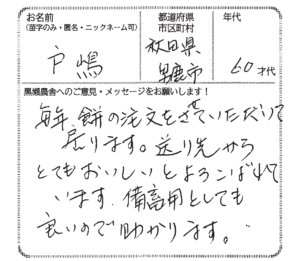 お名前
(苗字のみ・匿名・ニックネーム可)
都道府県
市区町村
年代
戸嶋
秋田県
男鹿市
60才代
黒瀬農舎へのご意見・メッセージをお願いします!
毎年、餅の注文をさせていただいて
居ります。送り先から
とてもおいしいとよろこばれて
います。備蓄用としても
良いので助かります。